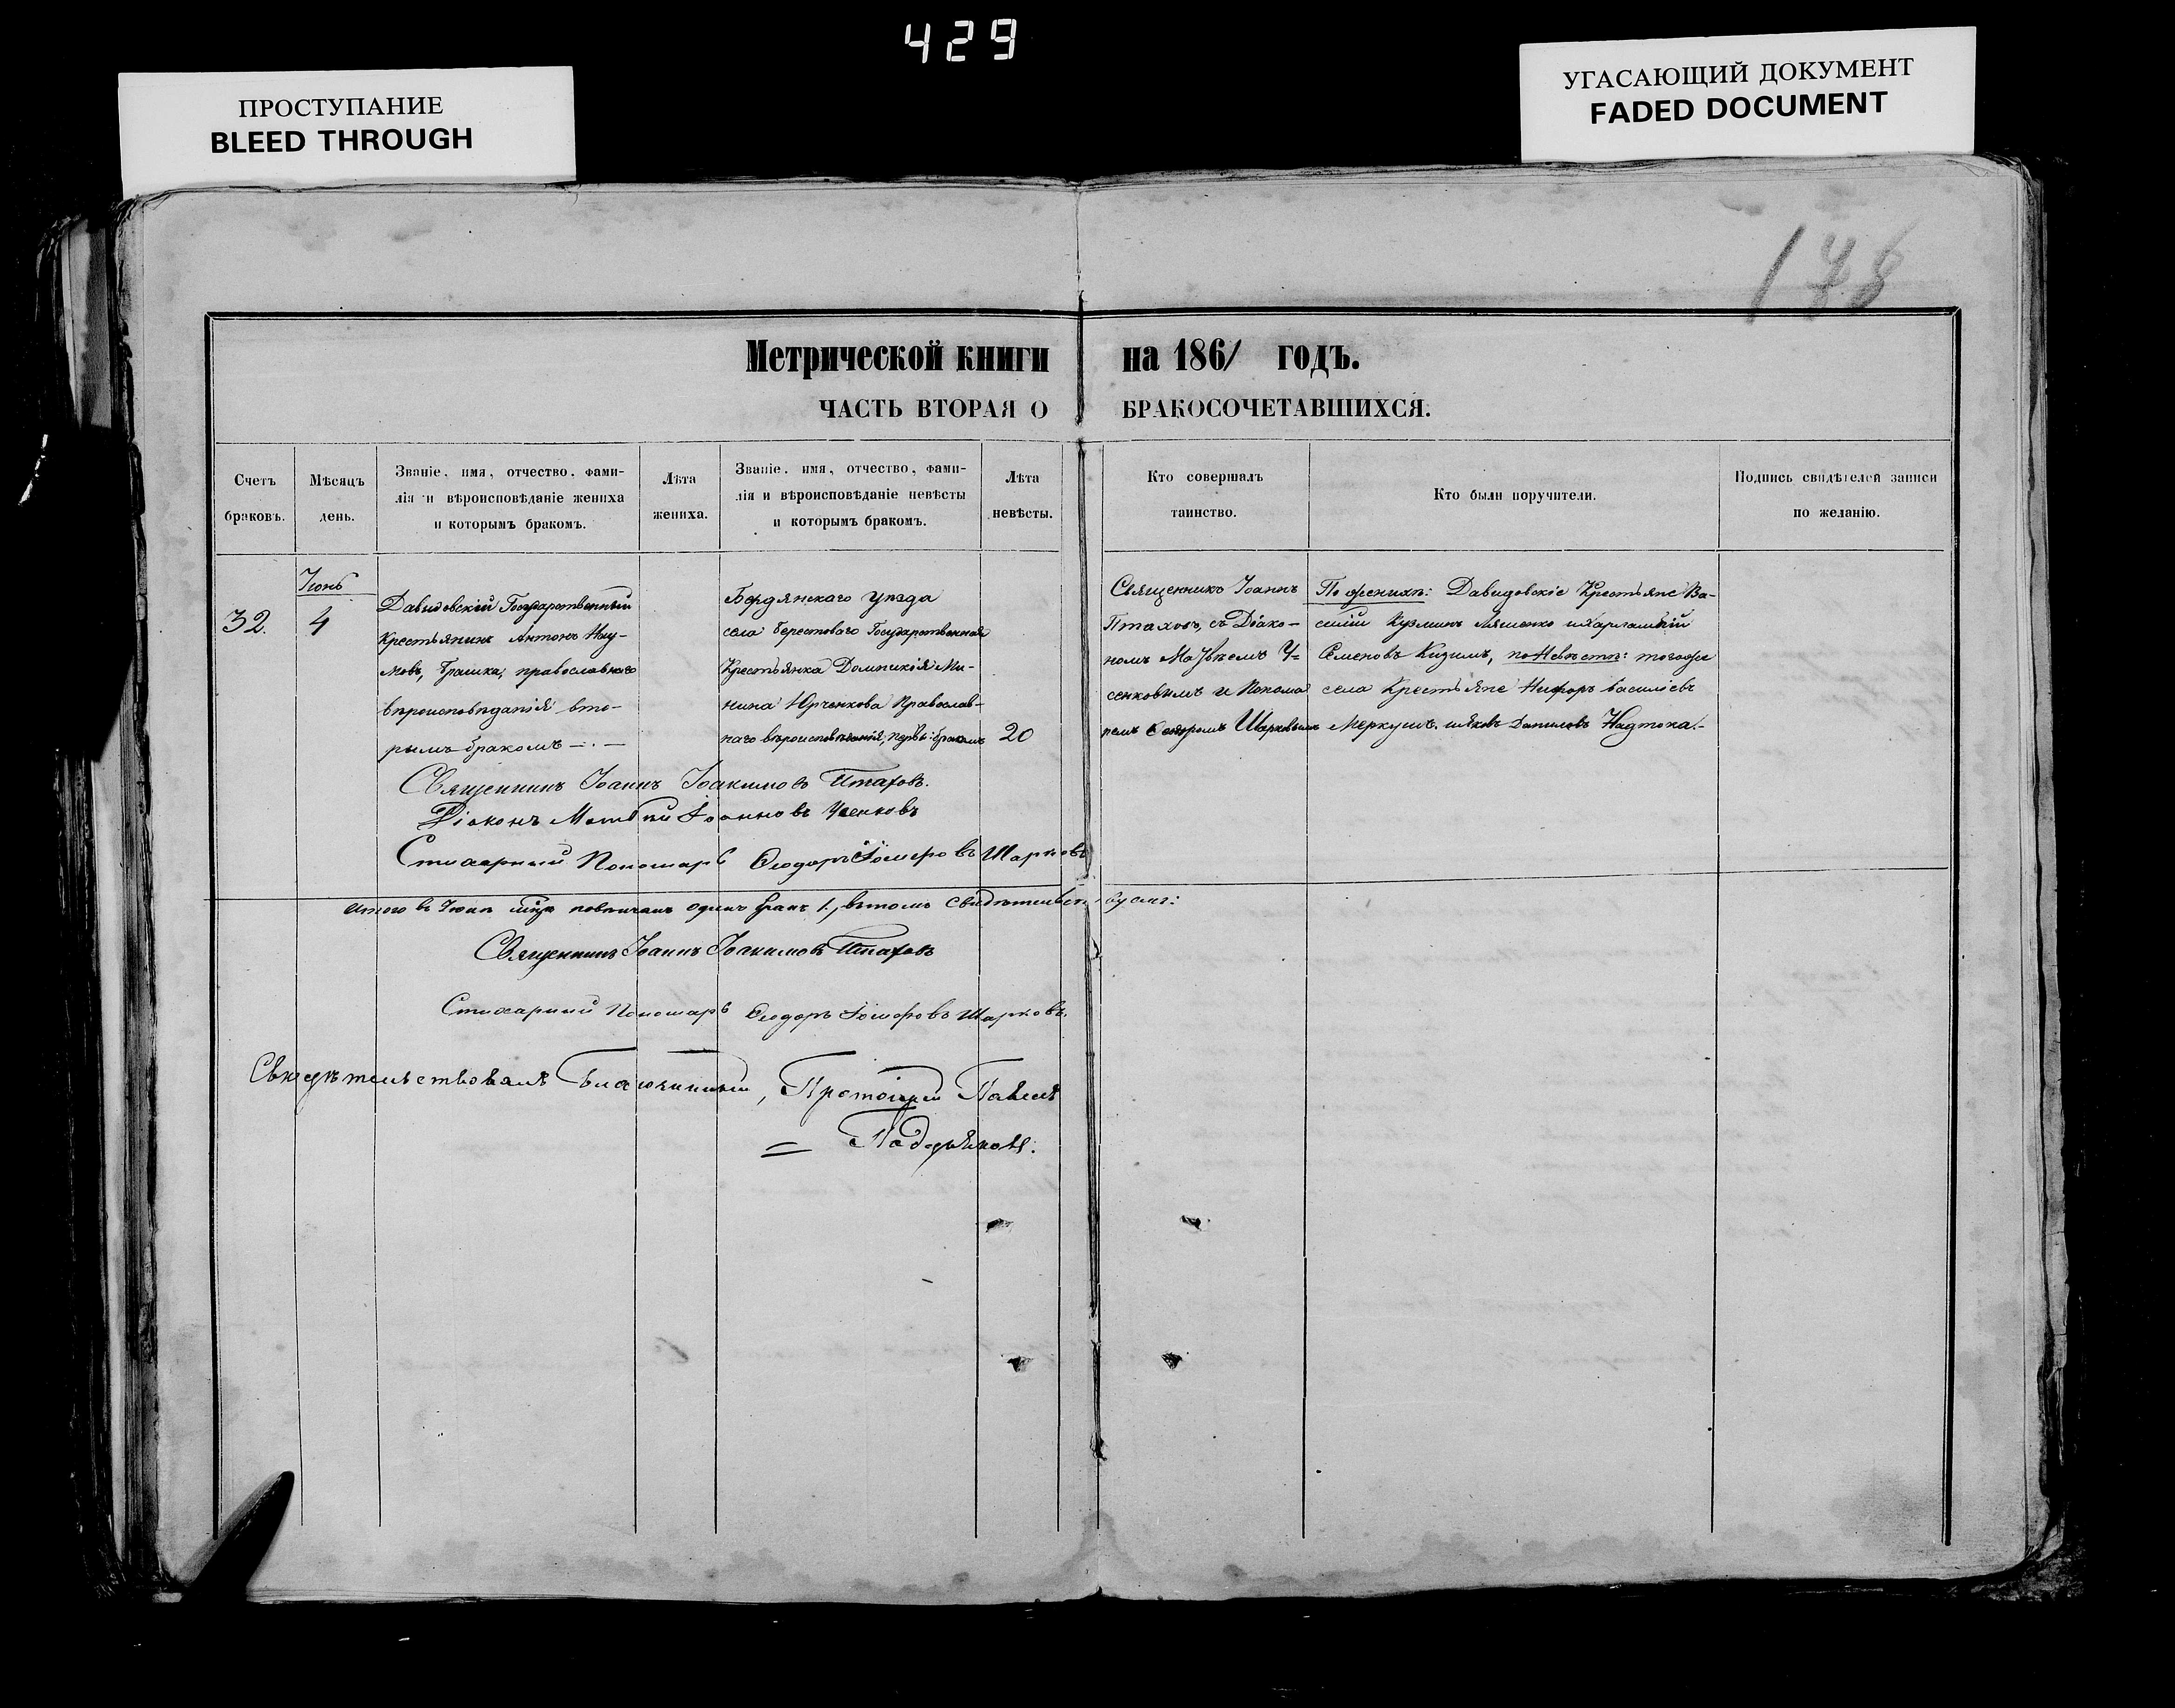 429
ПРОСТУПАНИЕ
BLEED THROUGH
УГАСАЮЩИЙ ДОКУМЕНТ
FADED DOCUMENT
178
Метрической книги на 1861 годъ.
ЧАСТЬ ВТОРАЯ О БРАКОСОЧЕТАВШИХСЯ.
Счетъ
браковъ.
Мѣсяцъ
день.
Званіе, имя, отчество, фами-
лія и вѣроисповѣданіе жениха
и которымъ бракомъ.
Лѣта
жениха.
Званіе, имя, отчество, фами-
лія и вѣроисповѣданіе невѣсты
и которымъ бракомъ.
Лѣта
невѣсты.
Кто совершалъ
таинство.
Кто были поручители.
Подпись свидѣтелей записи
по желанію.
32.
Іюнь
4
Давидовскій Государственный
Крестьянинъ Антонъ Нау-
мовъ, Грашка, православнаго
вѣроисповѣданія вто-
рымъ бракомъ —.—
Бердянскаго уѣзда
села Берестоваго Государственная
Крестьянка Домникія Ми-
нина Юрченкова Православ-
наго вѣроисповѣданія, первы: бракомъ
20
Священникъ Іоаннъ
Птаховъ, съ Діако-
номъ Матѳеемъ У=
сенковымъ и Понома
ремъ Ѳеодоромъ Шарковымъ
По женихѣ: Давидовскіе Крестьяне Ва-
силій Кузминъ Ляшенко и Харлампій
Семеновъ Кизимъ, по Невѣстѣ: тогоже
села Крестьяне Никифоръ Василіевъ
Меркушъ. и Яковъ Даниловъ Надтока.-
Священникъ Іоаннъ Іоакимовъ Птаховъ.
Діаконъ Матѳій Іоанновъ Усенковъ
Стихарный Пономарь Ѳеодоръ Шарковъ
Итого въ Іюнѣ мцѣ повѣнчанъ одинъ бракъ 1., въ томъ свидѣтельствуемъ:
Священникъ Іоаннъ Іоакимовъ Птаховъ
Стихарный Пономарь Ѳеодоръ Шарковъ.
Свидѣтельствовалъ Благочинный, Протоіерей Павелъ
= Поддубновъ.